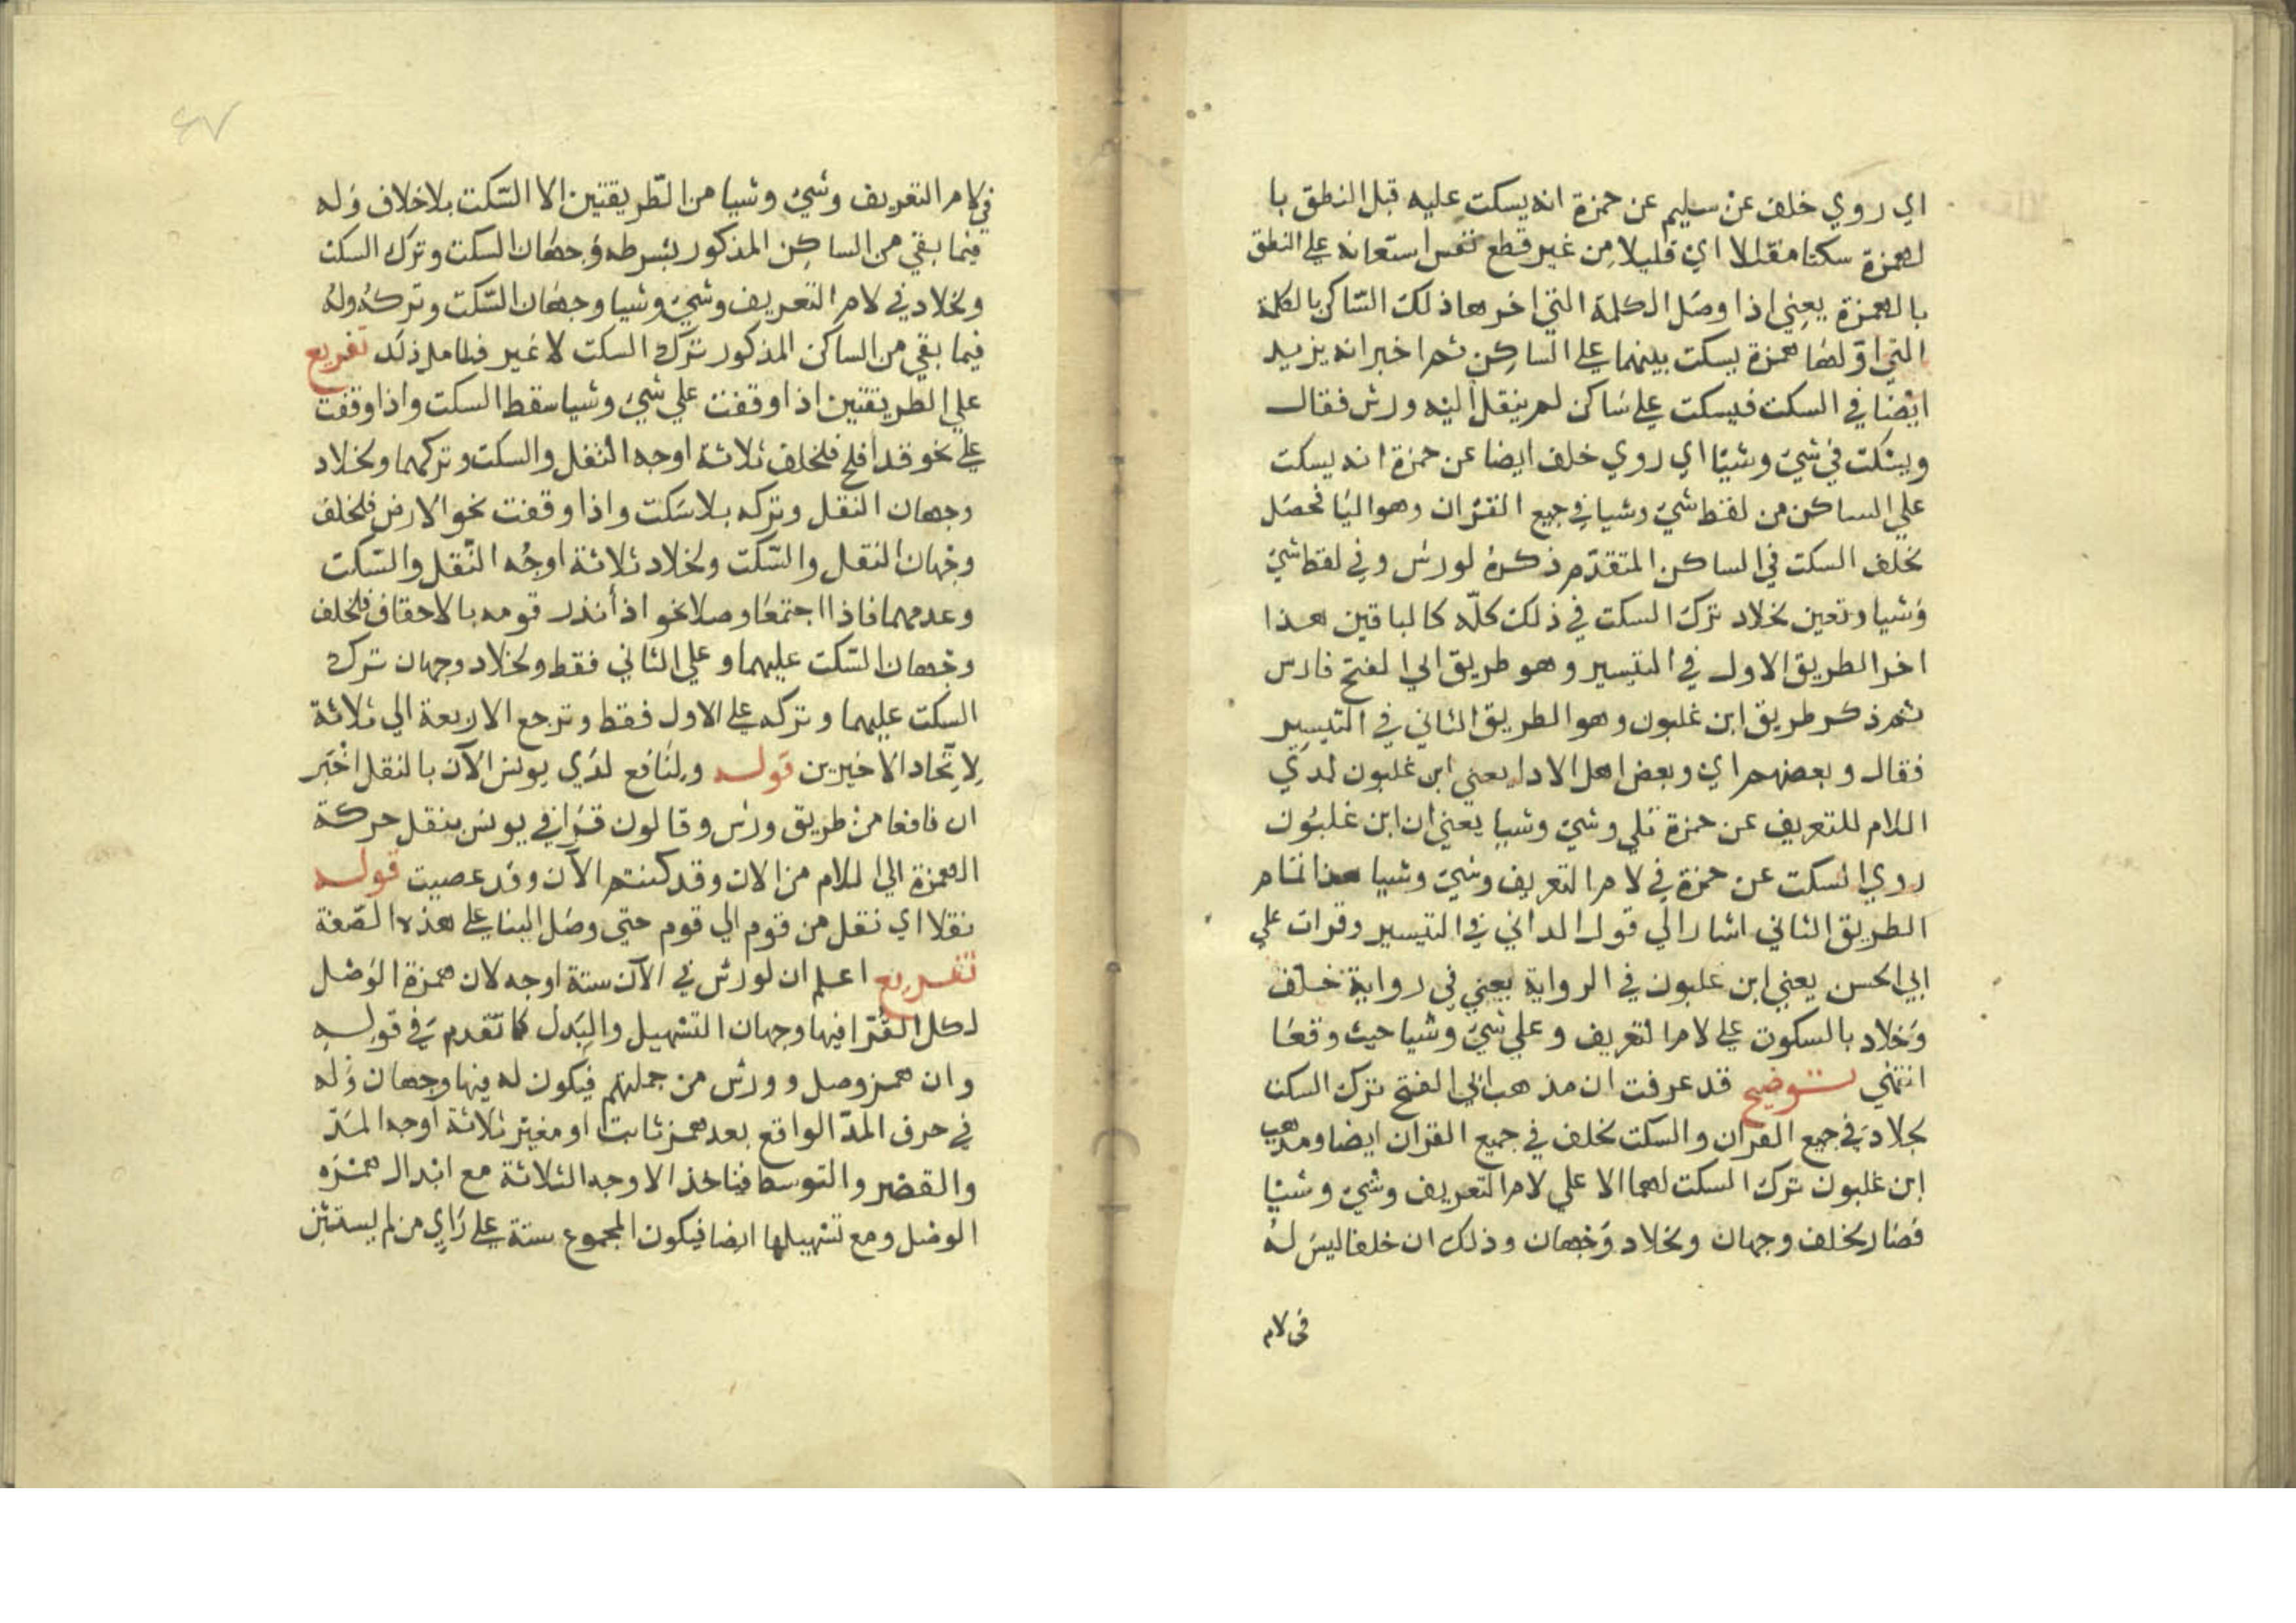 اي روي خلف عن سليم عن حمزة انه يسكت عليه قبل النطق با
لهمزة سكتا مقللا اي قليلا من غير قطع نفس استعانة علي النطق
بالهمزة يعني اذا وصل الكلمة التي اخرها ذلك الساكن بالكلمة
التي اوّلها همزة يسكت بينهما علي الساكن ثم اخبر انه يزيد
ايضا في السكت فيسكت علي ساكن لم ينقل اليه ورش فقال
ويسكت في شيء وشيئا اي روي خلف ايضا عن حمزة انه يسكت
علي الساكن من لفظ شيء وشيا في جميع القران وهو اليا فحصل
لخلف السكت في الساكن المتقدّم ذكرهُ لورش وفي لفظ شيء
وشيا وتعين لخلاد ترك السكت في ذلك كلّه كالباقين هذا
اخر الطريق الاول في التيسير وهو طريق ابي الفتح فارس
ثم ذكر طريق ابن غلبون وهو الطريق الثاني في التيسير
فقال وبعضهم اي وبعض اهل الادا يعني ابن غلبون لدي
اللام للتعريف عن حمزة تلي وشيء وشيا يعني ان ابن غلبون
روي السكت عن حمزة في لام التعريف وشيء وشيا هذا تمام
الطريق الثاني اشار الي قول الداني في التيسير وقرات علي
ابي الحسن يعني ابن غلبون في الرواية يعني في رواية خلف
وخلاد بالسكوت علي لام التعريف وعلي شيء وشيا حيث وقعا
انتهي توضيح قد عرفت ان مذهب ابي الفتح ترك السكت
لخلاد في جميع القران والسكت لخلف في جميع القران ايضا ومذهب
ابن غلبون ترك السكت لهما الا علي لام التعريف وشيء وشيئا
فصار لخلف وجهان ولخلاد وجهان وذلك ان خلفا ليس له
في لام
٤٧
في لام التعريف وشيء وشيا من الطريقتين الا السّكت بلا خلاف وله
فيما بقي من الساكن المذكور بشرطه وجهان السكت وترك السكت
ولخلاد في لام التعريف وشيء وشيا وجهان السّكت وتركهُ ولهُ
فيما بقي من الساكن المذكور ترك السكت لا غير فتامل ذلك تفريع
علي الطريقتين اذا وقفت علي شيء وشيا سقط السكت واذا وقفت
علي نحو قد افلح فلخلف ثلاثة اوجه النقل والسكت وتركهما ولخلاد
وجهان النقل وتركه بلا سكت واذا وقفت نحو الارض فلخلف
وجهان النقل والسّكت ولخلاد ثلاثة اوجُه النّقل والسّكت
وعدمهما فاذا اجتمعا وصلا نحو اذ أنذر قومه بالاحقاف فلخلف
وجهان السّكت عليهما و علي الثاني فقط ولخلاد وجهان ترك
السكت عليهما وتركه علي الاول فقط وترجع الاربعة الي ثلاثة
لاِتّحاد الاخيرين قوله ولنافع لدي يونس الآن بالنقل اخبر
ان نافعا من طريق ورش وقالون قرا في يونس بنقل حركة
الهمزة الي اللام من الان وقد كنتم الآن وقد عصيت قوله
نقلا اي نقل من قوم الي قوم حتي وصل الينا علي هذه الصّفة
تفريع اعلم ان لورش في الآن ستة اوجه لان همزة الوصل
لكل القُرّا فيها وجهان التسهيل والبدل كما تقدم في قوله
وان همز وصل وورش من جملتهم فيكون له فيها وجهان وله
في حرف المدّ الواقع بعد همز ثابت او مغير ثلاثة اوجه المدّ
والقصر والتوسط فتاخذ الاوجه الثلاثة مع ابدال همزه
الوصل ومع تسهيلها ايضا فيكون المجموع ستة علي رَاي من لم يستثن